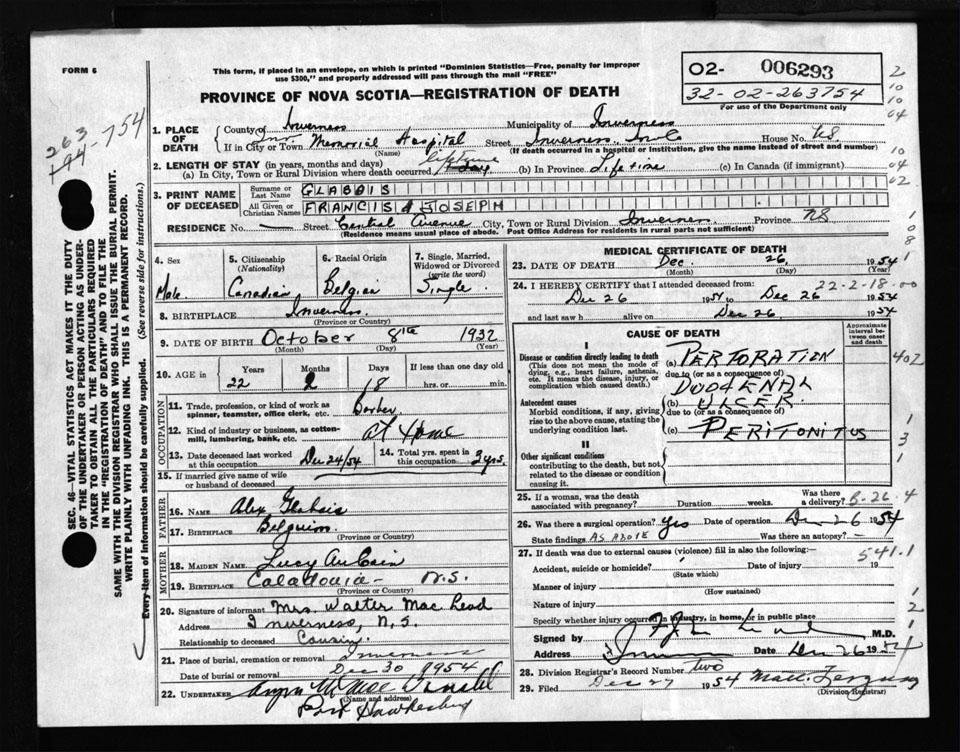 FORM 6
This form, if placed in an envelope, on which is printed "Dominion Statistics—Free, penalty for improper
use $300," and properly addressed will pass through the mail "FREE"
02- 006293
32-02-263754
For use of the Department only
PROVINCE OF NOVA SCOTIA—REGISTRATION OF DEATH
263
194-754
1. PLACE OF DEATH
County of Inverness Municipality of Inverness
If in City or Town Inv. Memorial Hospital Street Inverness, House No. NS
(Name) (If death occurred in a hospital or institution, give the name instead of street and number)
2. LENGTH OF STAY (in years, months and days)
(a) In City, Town or Rural Division where death occurred lifetime (b) In Province Lifetime (c) In Canada (if immigrant)
3. PRINT NAME OF DECEASED
Surname or Last Name GLABBIS
All Given or Christian Names FRANCIS JOSEPH
RESIDENCE No. — Street Central Avenue City, Town or Rural Division Inverness Province NS
(Residence means usual place of abode. Post Office Address for residents in rural parts not sufficient)
4. Sex Male
5. Citizenship (Nationality) Canadian
6. Racial Origin Belgian
7. Single, Married, Widowed or Divorced (write the word) Single
8. BIRTHPLACE Inverness
(Province or Country)
9. DATE OF BIRTH October 8th 1932
(Month) (Day) (Year)
10. AGE in Years Months Days If less than one day old
22 2 18 hrs. or min.
OCCUPATION
11. Trade, profession, or kind of work as spinner, teamster, office clerk, etc. Barber
12. Kind of industry or business, as cotton-mill, lumbering, bank, etc. At Home
13. Date deceased last worked at this occupation Dec 24/54
14. Total yrs. spent in this occupation 2 yrs.
15. If married give name of wife or husband of deceased
FATHER
16. Name Alex Glabbis
17. Birthplace Belguim
(Province or Country)
MOTHER
18. MAIDEN NAME Lucy AuCoin
19. BIRTHPLACE Caladonia - N.S.
(Province or Country)
20. Signature of informant Mrs. Walter Mac Leod
Address Inverness, N.S.
Relationship to deceased Cousin.
21. Place of burial, cremation or removal Inverness
Date of burial or removal Dec 30 1954
22. UNDERTAKER
(Name and address)
Port Hawkesbury
MEDICAL CERTIFICATE OF DEATH
23. DATE OF DEATH Dec. 26, 1954
(Month) (Day) (Year)
22-2-18-00
24. I HEREBY CERTIFY that I attended deceased from:
Dec 26 1954 to Dec 26 1954
and last saw h alive on Dec 26 1954
CAUSE OF DEATH
Approximate interval between onset and death
I
Disease or condition directly leading to death
(This does not mean the mode of dying, e.g., heart failure, asthenia, etc. It means the disease, injury, or complication which caused death.)
(a) PERFORATION
due to (or as a consequence of)
DUODENAL
(b) ULCER
due to (or as a consequence of)
(c) PERITONITUS
Antecedent causes
Morbid conditions, if any, giving rise to the above cause, stating the underlying condition last.
II
Other significant conditions
contributing to the death, but not related to the disease or condition causing it.
25. If a woman, was the death associated with pregnancy? Duration weeks. Was there a delivery?
5-26-4
26. Was there a surgical operation? Yes Date of operation Dec 26 1954
State findings AS ABOVE Was there an autopsy? —
27. If death was due to external causes (violence) fill in also the following:—
541.1
Accident, suicide or homicide? Date of injury 19
(State which)
Manner of injury
(How sustained)
Nature of injury
Specify whether injury occurred in industry, in home, or in public place
Signed by M.D.
Address Date Dec 26 1954
28. Division Registrar's Record Number two
29. Filed Dec 27 1954
(Division Registrar)
SEC. 46—VITAL STATISTICS ACT MAKES IT THE DUTY
OF THE UNDERTAKER OR PERSON ACTING AS UNDER-
TAKER TO OBTAIN ALL THE PARTICULARS REQUIRED
IN THE "REGISTRATION OF DEATH" AND TO FILE THE
SAME WITH THE DIVISION REGISTRAR WHO SHALL ISSUE THE BURIAL PERMIT.
WRITE PLAINLY WITH UNFADING INK. THIS IS A PERMANENT RECORD.
Every item of information should be carefully supplied. (See reverse side for instructions.)
2
10
10
04
10
04
02
1
0
8
1
402
1
3
1
1
2
1